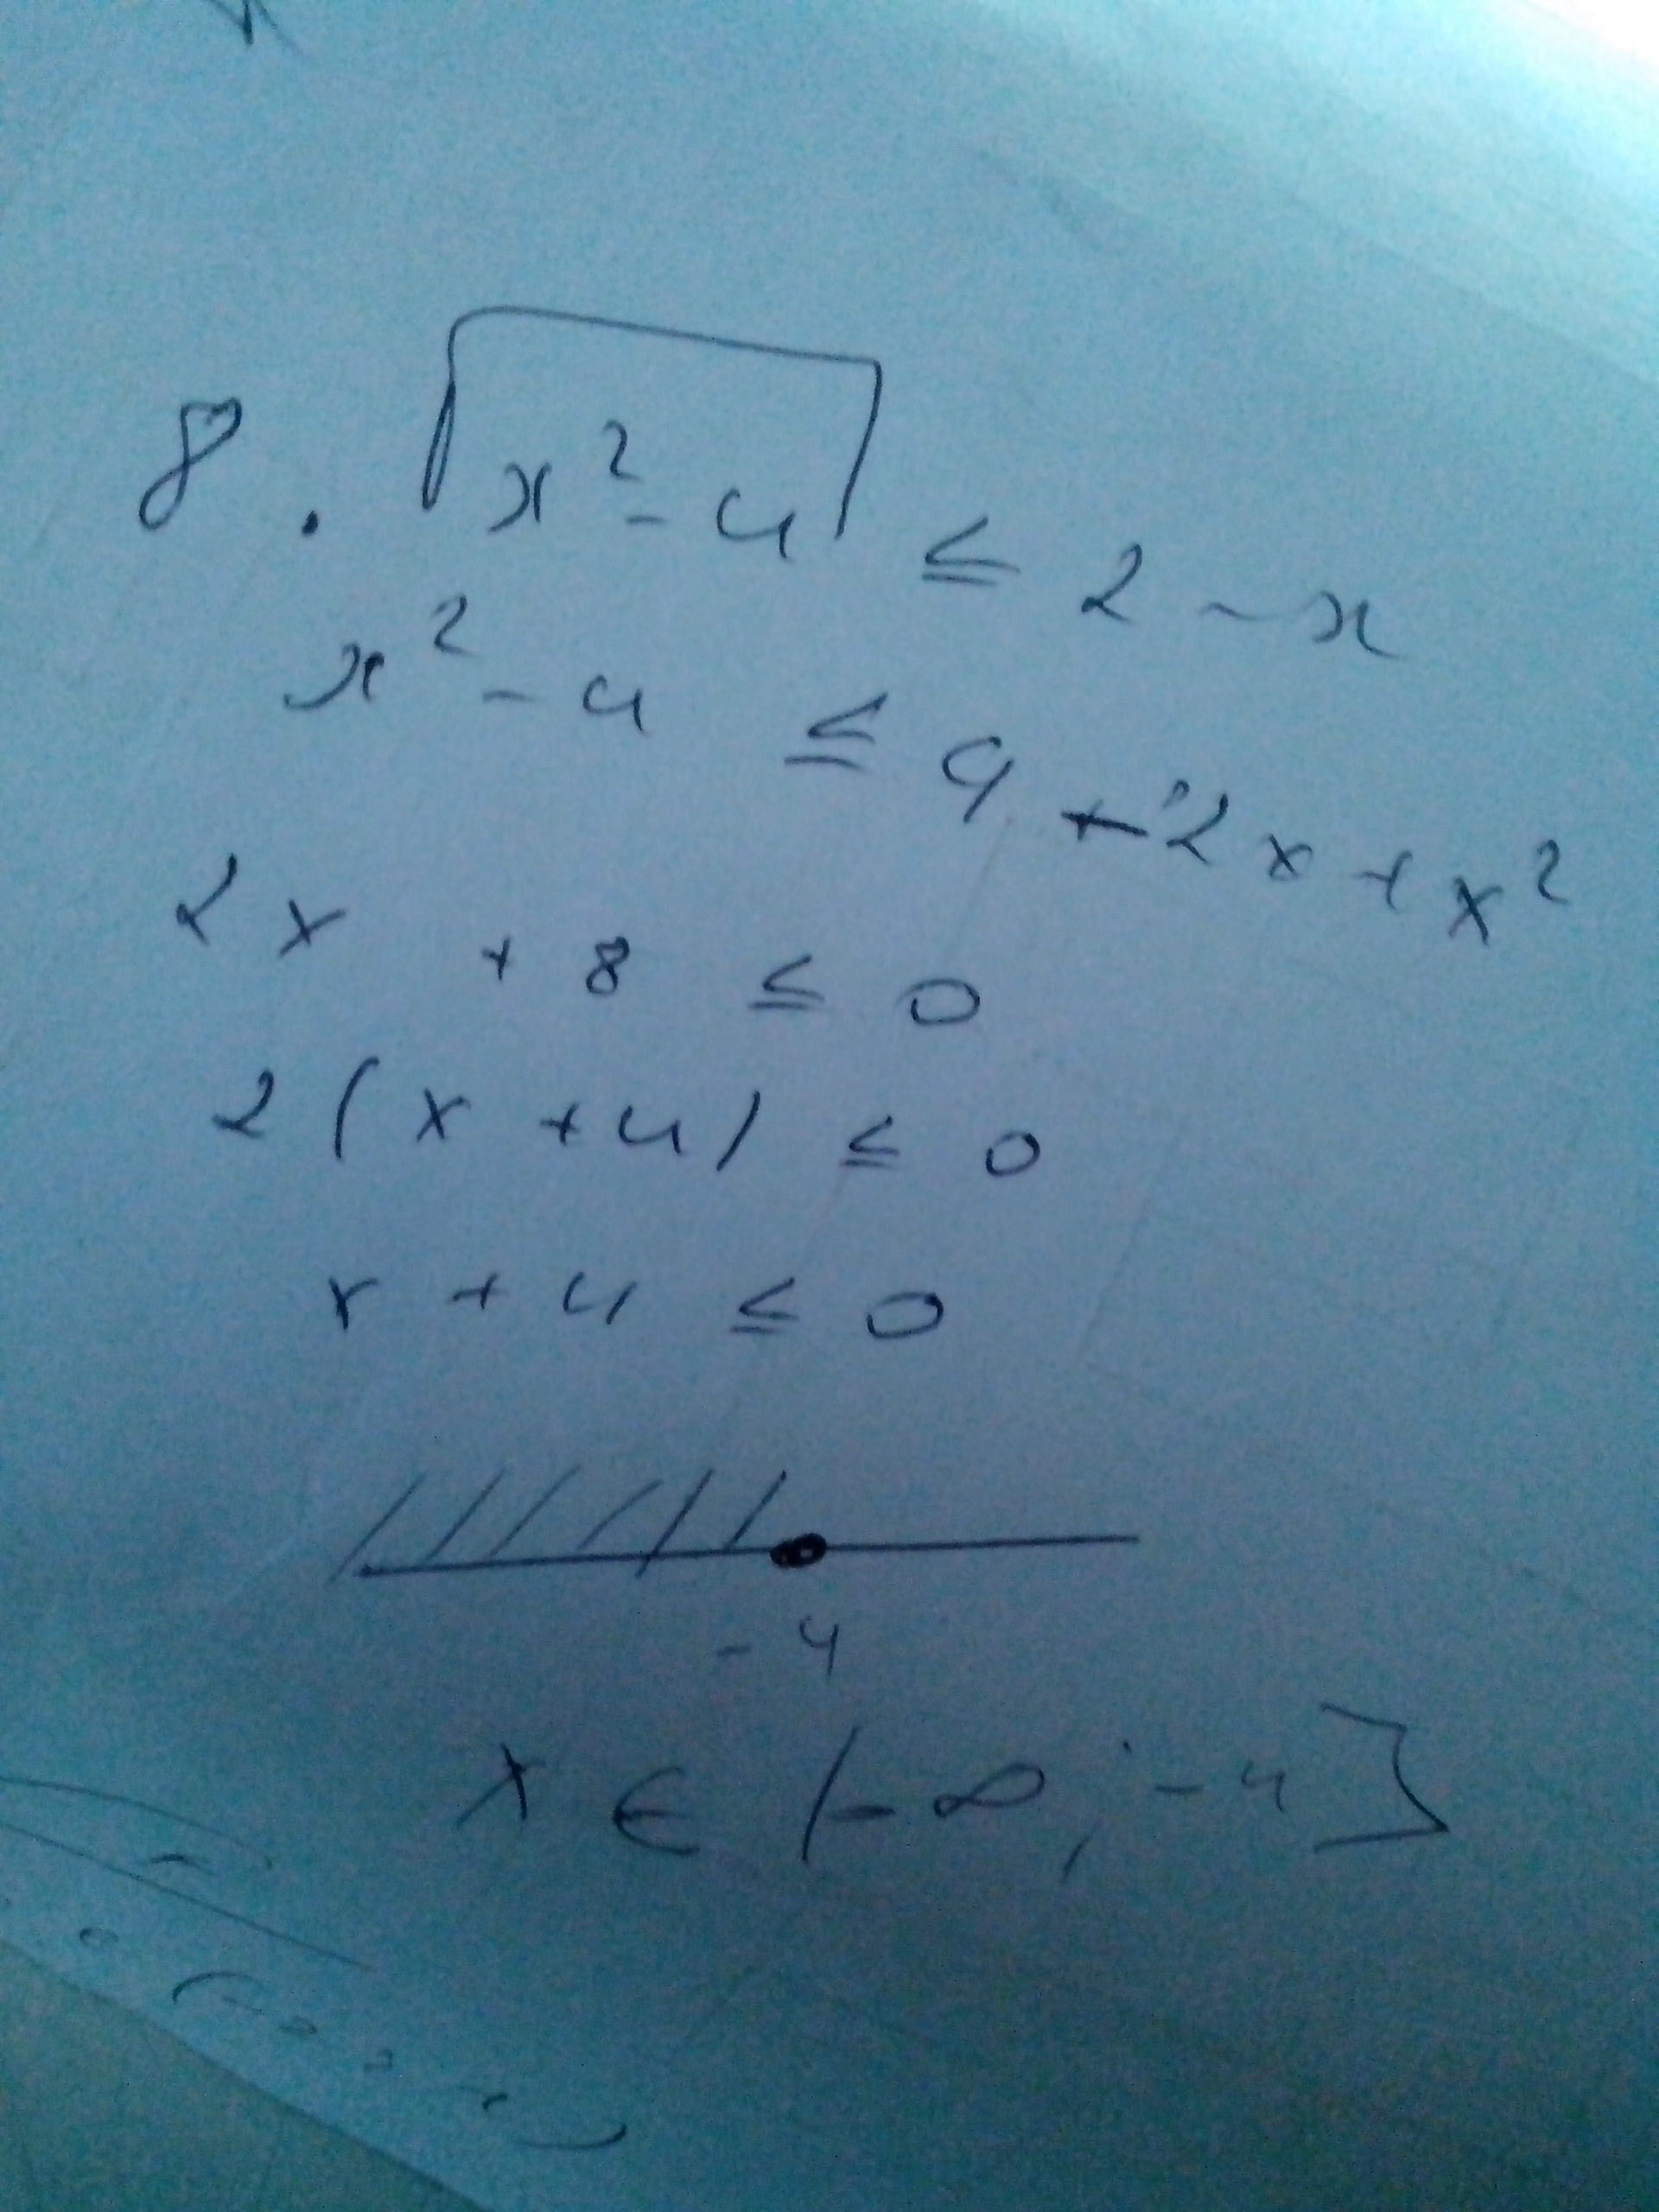 8. √(x² - 4) ≤ 2 - x
x² - 4 ≤ 4 - 2x + x²
2x + 8 ≤ 0
2(x + 4) ≤ 0
x + 4 ≤ 0
-4
x ∈ (-∞; -4]